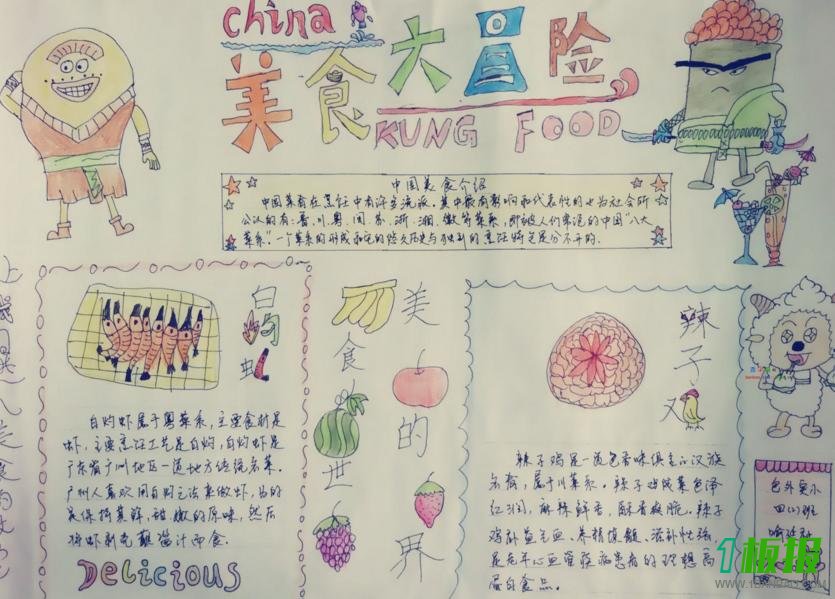 china
美食大冒险
KUNG FOOD
中国美食介绍
中国菜肴在烹饪中有许多流派。其中最有影响和代表性的也为社会所
公认的有:鲁、川、粤、闽、苏、浙、湘、徽等菜系,即被人们常说的中国“八大
菜系”。一个菜系的形成和它的悠久历史与独到的烹饪特色是分不开的。
白灼虾
白灼虾属于粤菜系,主要食材是
虾,主要烹饪工艺是白灼,白灼虾是
广东省广州地区一道地方传统名菜。
广州人喜欢用白灼之法来做虾,为的
是保持其鲜、甜、嫩的原味,然后
将虾剥壳蘸酱汁而食。
Delicious
美
食
的
世
界
辣
子
又
辣子鸡是一道色香味俱全的汉族
名肴,属于川菜系。辣子鸡成菜色泽
红润,麻辣鲜香,酥香爽脆。辣子
鸡补益气血、养精填髓、滋补性强,
是老年心血管疾病患者的理想高
蛋白食品。
包外实小
四(1)班
1板报